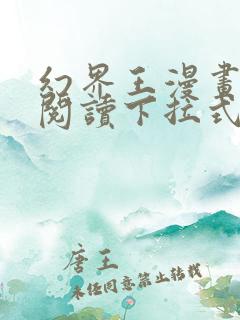 幻界王漫畫
閱讀下拉式
唐王
未經同意禁止轉載